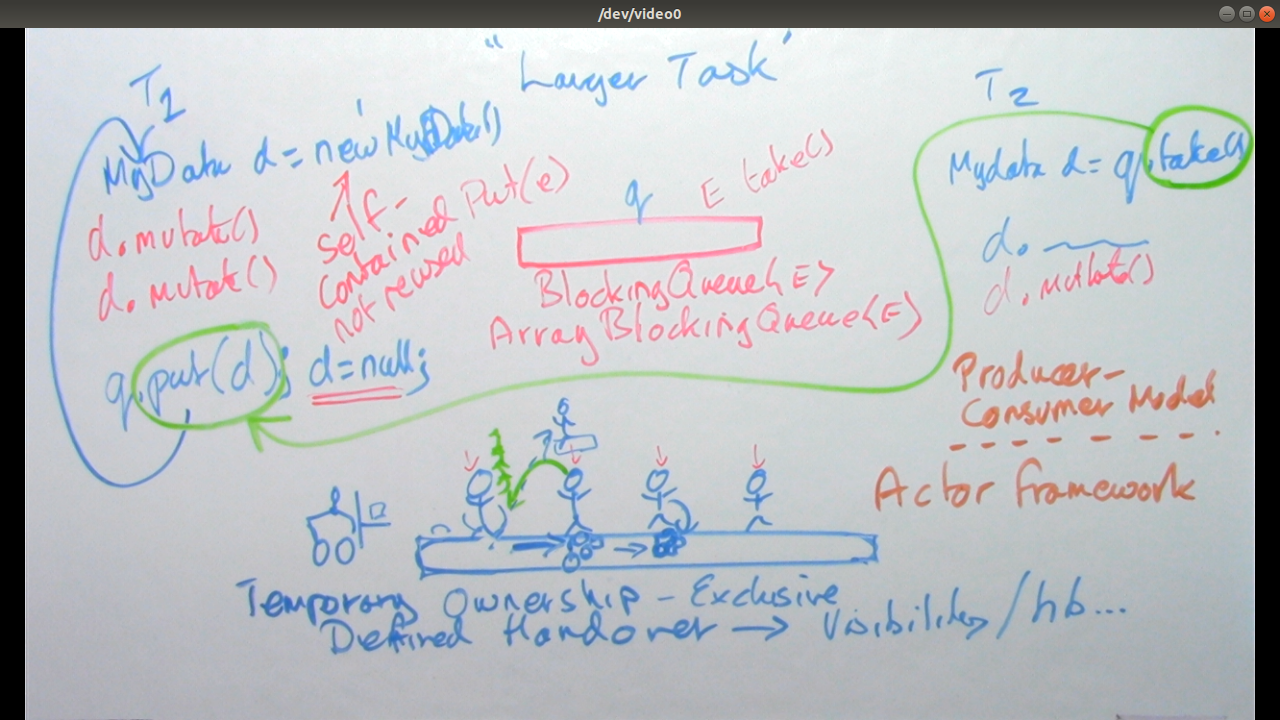 /dev/video0
"Larger Task"
T1
MyData d = new MyData()
d.mutate()
d.mutate()
self-
contained
not reused
q.put(d); d=null;
q
Put(e)
E take()
BlockingQueue<E>
ArrayBlockingQueue<E>
T2
Mydata d= q.take()
d.
d.mutate()
Producer-
Consumer Model
Actor framework
Temporary Ownership - Exclusive
Defined Handover → Visibility/hb...